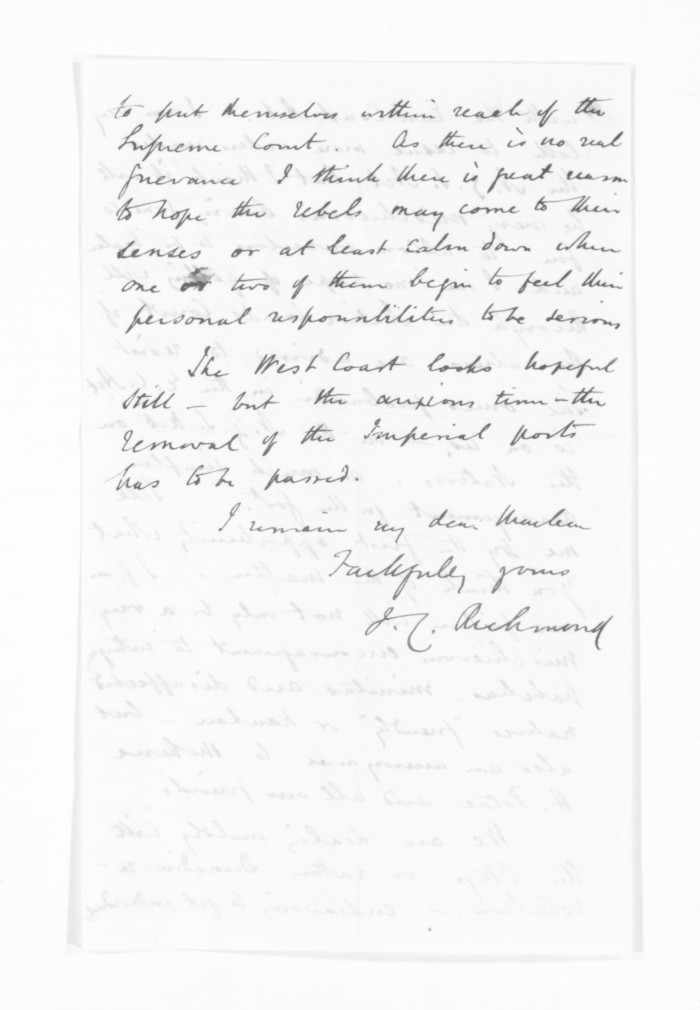 to put themselves within reach of the
Supreme Court. As there is no real
grievance I think there is great reason
to hope the rebels may come to their
senses or at least calm down when
one or two of them begin to feel their
personal responsibilities to be serious
The West Coast looks hopeful
still – but the anxious time – the
removal of the Imperial posts
has to be passed.
I remain my dear Maclean
Faithfully yours
J. C. Richmond